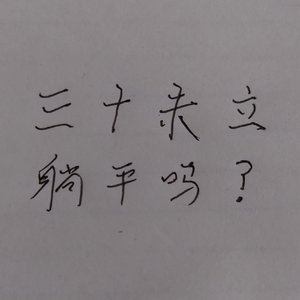 三十未立
躺平吗？